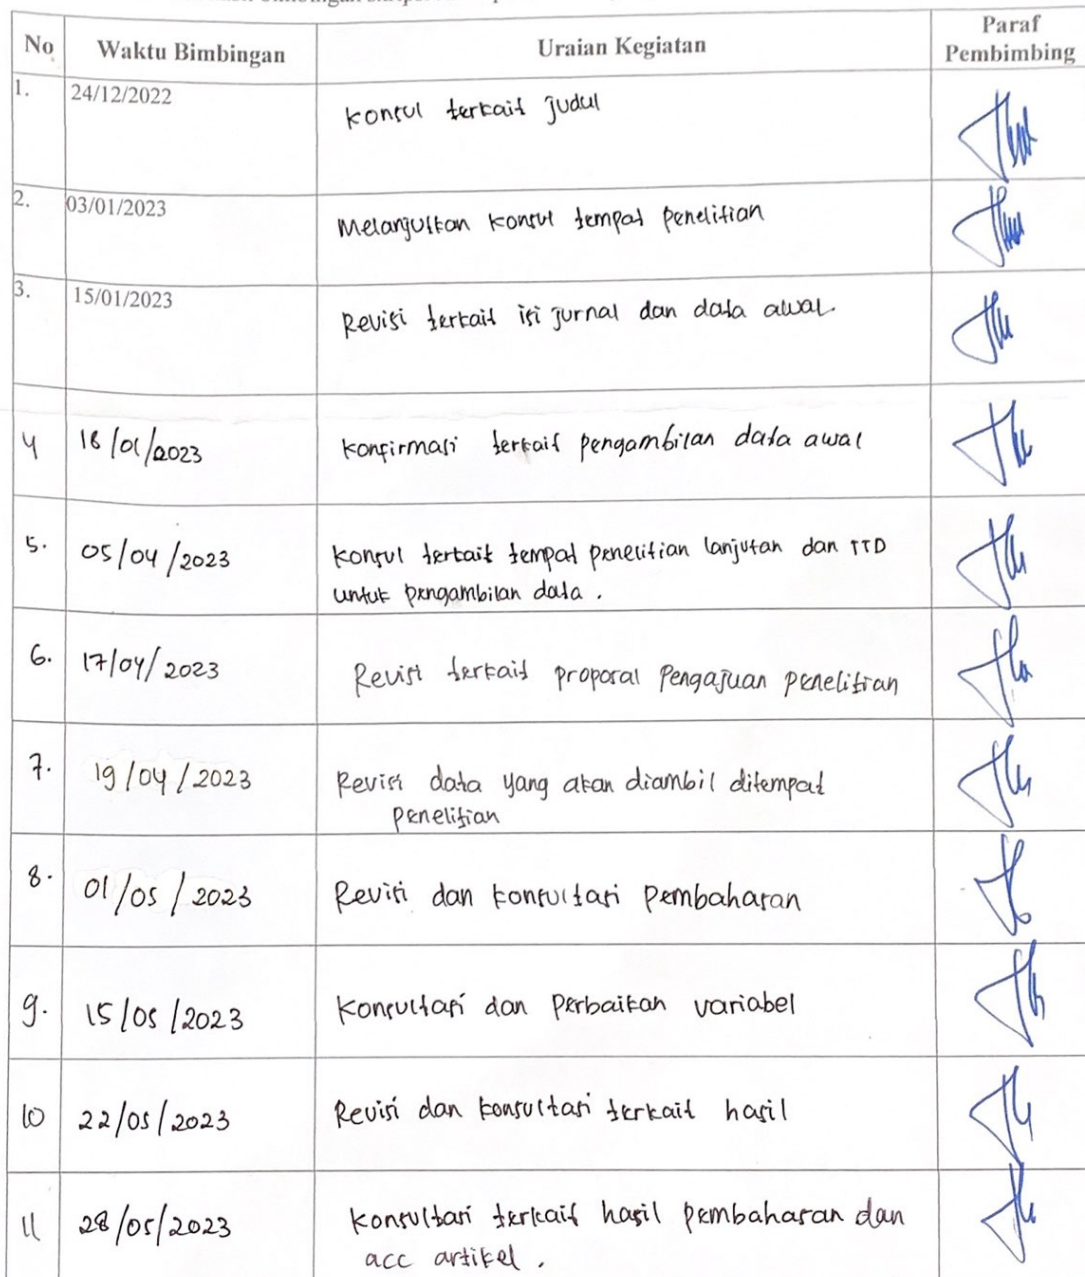 No Waktu Bimbingan Uraian Kegiatan Paraf Pembimbing
1. 24/12/2022 Konsul terkait judul
2. 03/01/2023 Melanjutkan konsul tempat penelitian
3. 15/01/2023 Revisi terkait isi jurnal dan data awal.
4 18/01/2023 Konfirmasi terkait pengambilan data awal
5. 05/04/2023 Konsul terkait tempat penelitian lanjutan dan TTD
untuk pengambilan data.
6. 17/04/2023 Revisi terkait proposal Pengajuan penelitian
7. 19/04/2023 Revisi data yang akan diambil ditempat
penelitian
8. 01/05/2023 Revisi dan konsultasi Pembahasan
9. 15/05/2023 Konsultasi dan Perbaikan variabel
10 22/05/2023 Revisi dan konsultasi terkait hasil
11 28/05/2023 Konsultasi terkait hasil pembahasan dan
acc artikel.